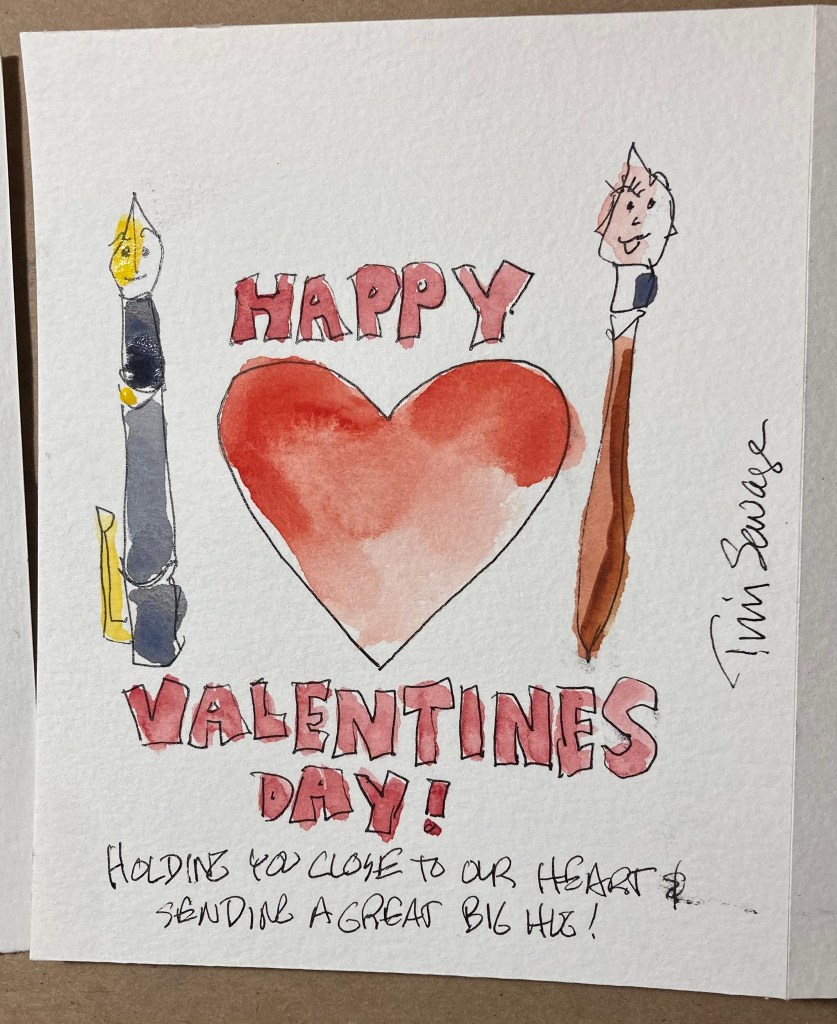 HAPPY
VALENTINES
DAY!
HOLDING YOU CLOSE TO OUR HEART &
SENDING A GREAT BIG HUG!
Tim Savage